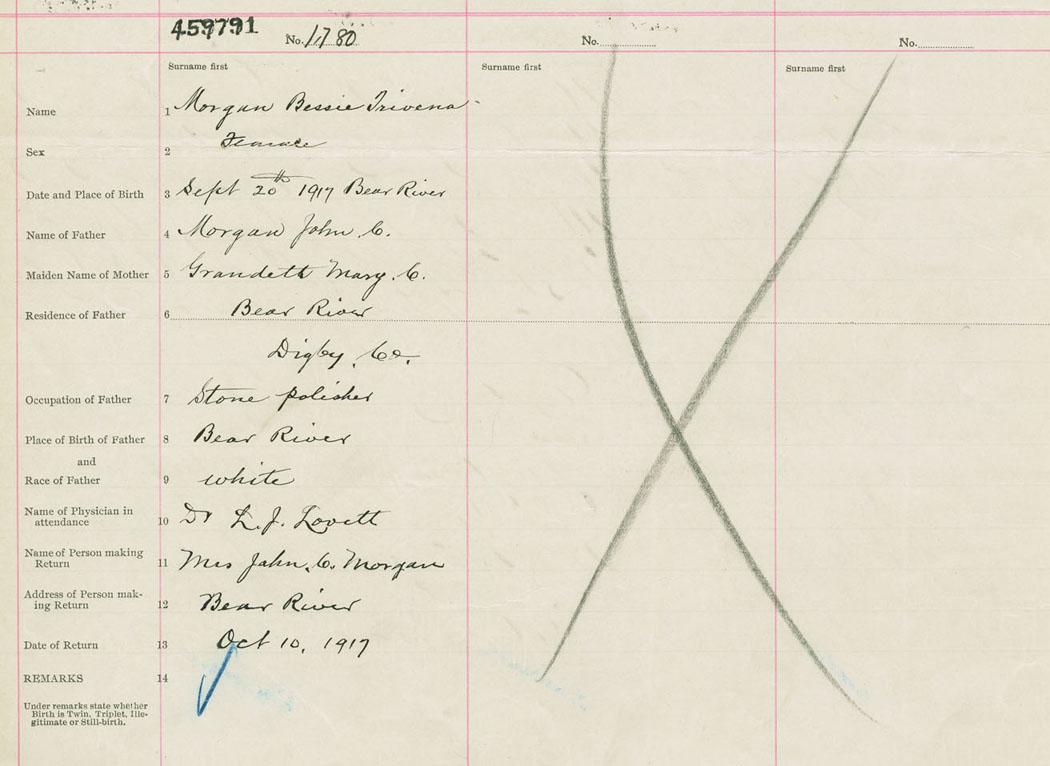 459791
No. 1780 No. No.
Surname first Surname first Surname first
Name 1 Morgan Bessie Trivena
Sex 2 Female
Date and Place of Birth 3 Sept 20th 1917 Bear River
Name of Father 4 Morgan John C.
Maiden Name of Mother 5 Mary C.
Residence of Father 6 Bear River
Digby Co.
Occupation of Father 7 Stone polisher
Place of Birth of Father 8 Bear River
and
Race of Father 9 white
Name of Physician in
attendance 10 Dr L. J. Lovett
Name of Person making
Return 11 Mrs John C. Morgan
Address of Person mak-
ing Return 12 Bear River
Date of Return 13 Oct 10, 1917
REMARKS 14
Under remarks state whether
Birth is Twin, Triplet, Ille-
gitimate or Still-birth.